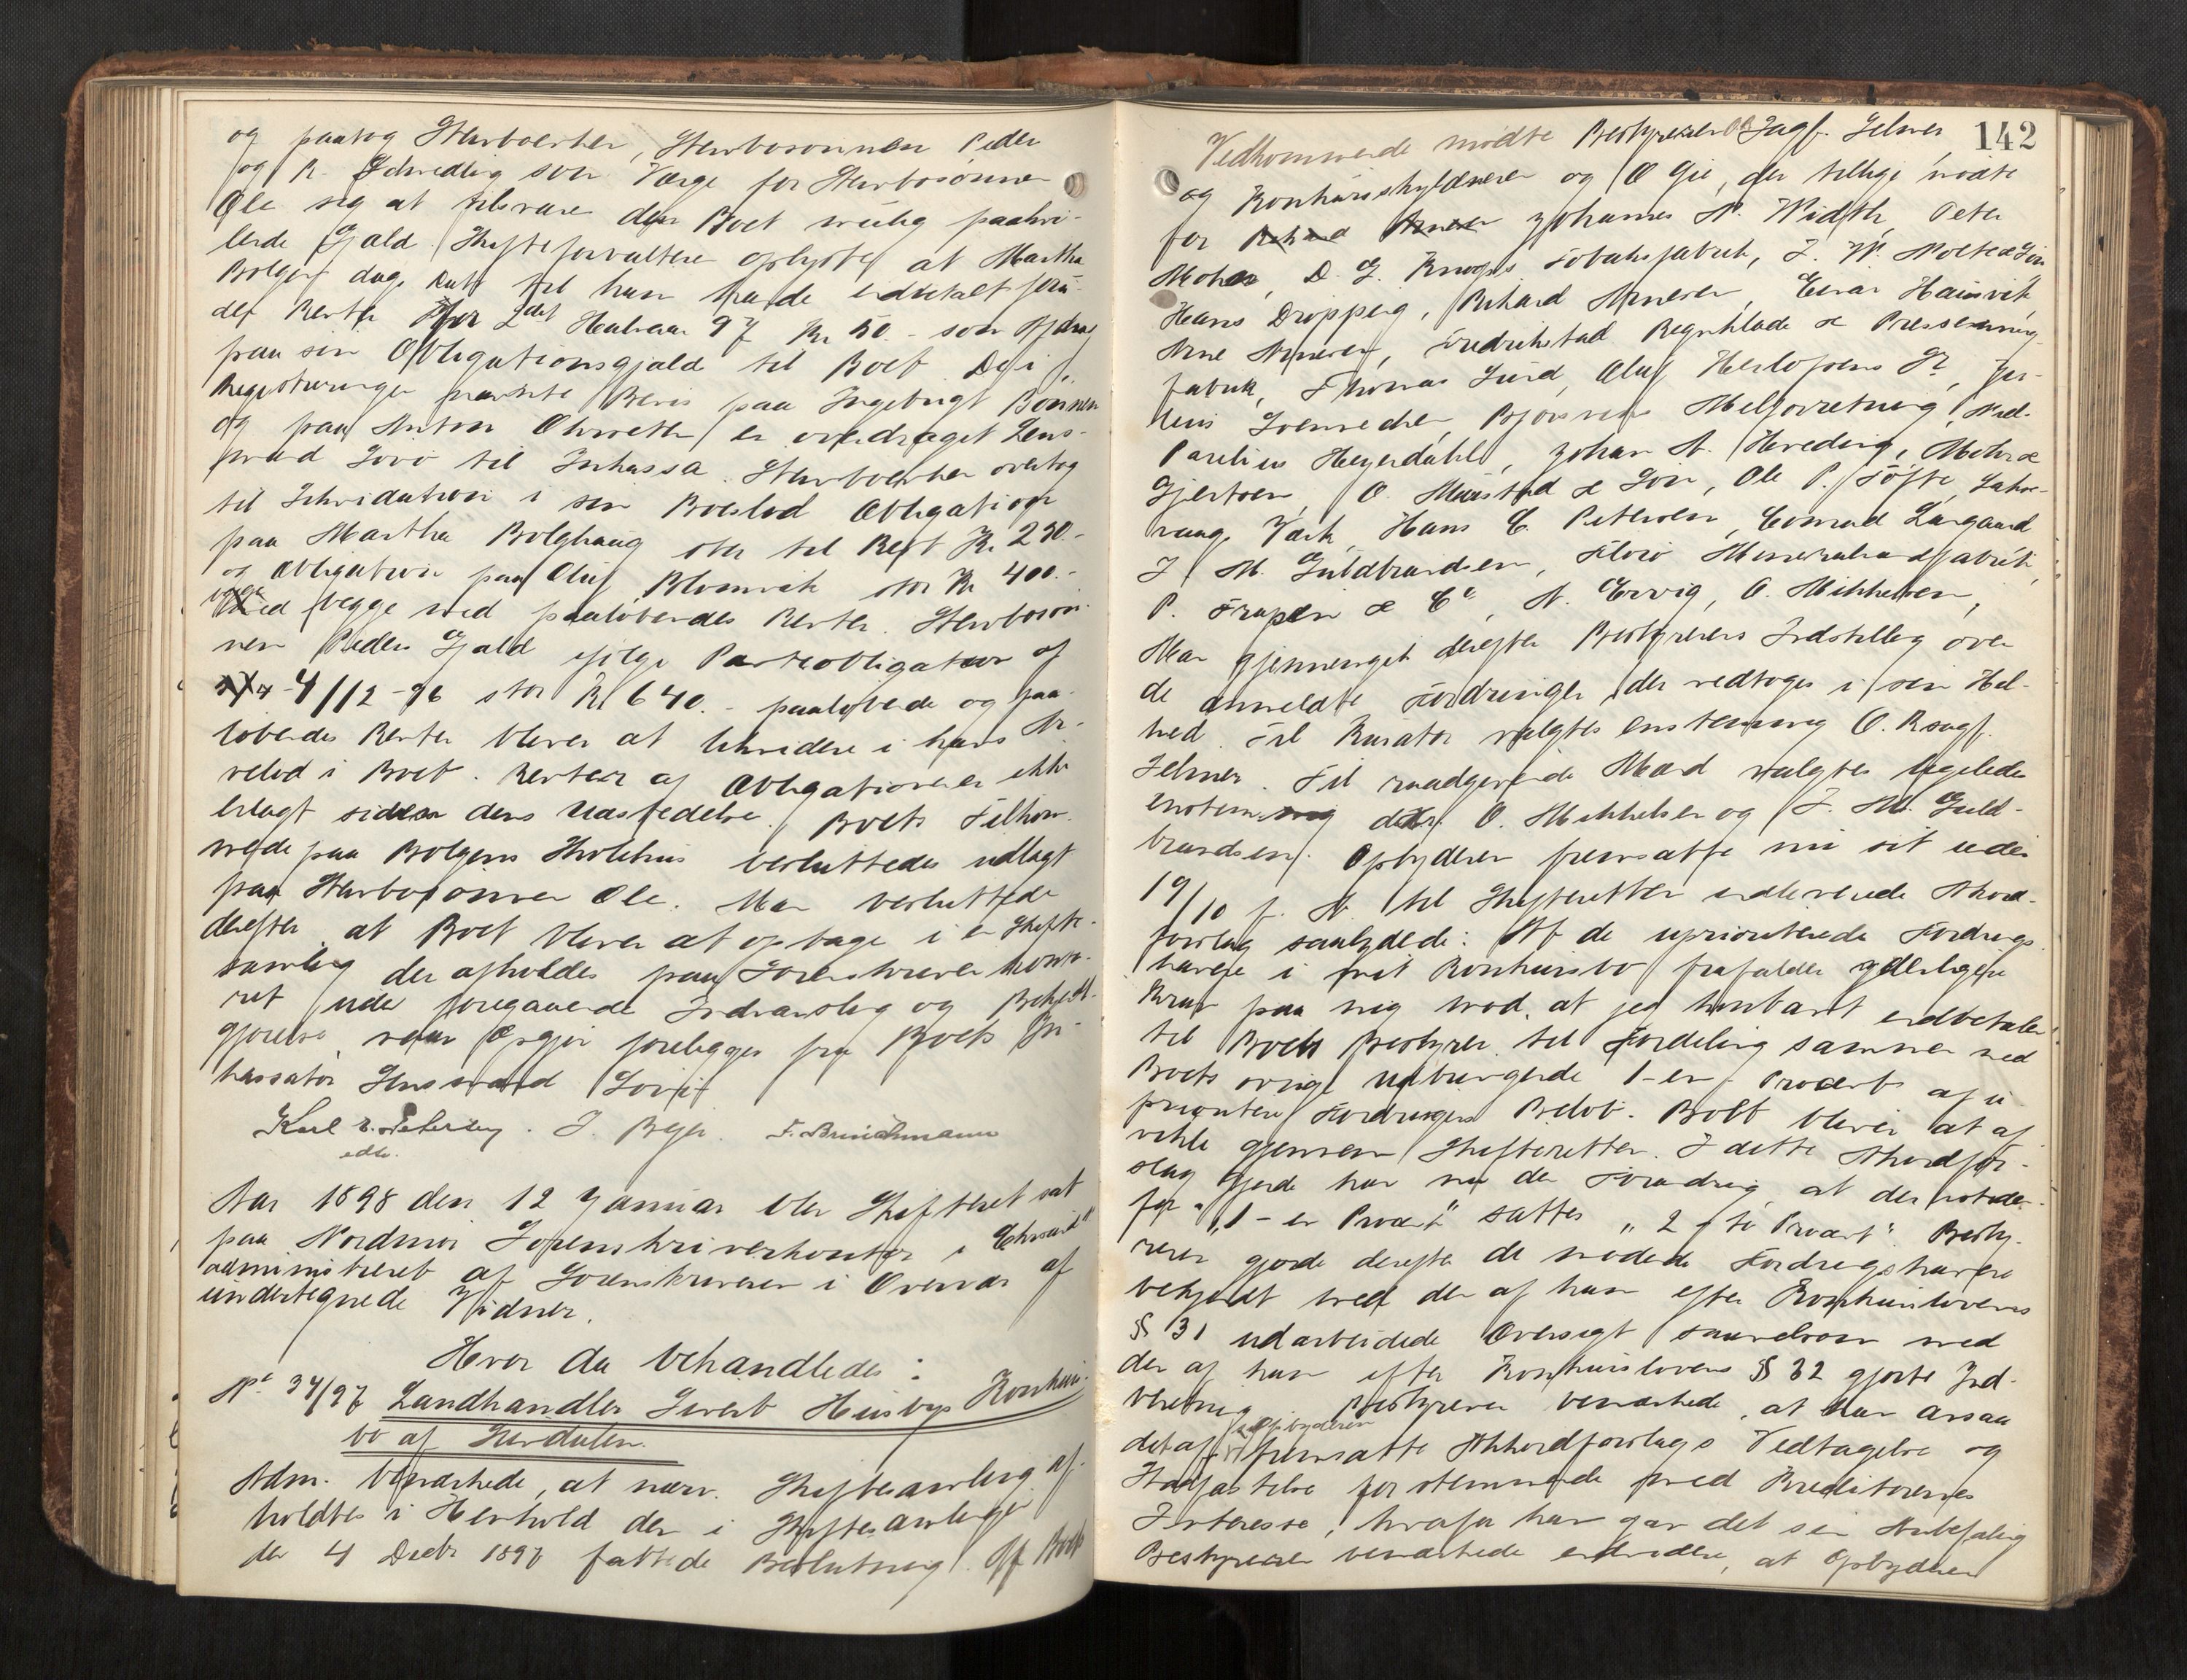 og paatog Stervboenken, Stervbosønnen Peder
og R. Schreding som Værge for Stervbosønnen
Ole sig at tilsvare den Boet mulig paahvi-
lende Gjæld. Skifteforvalteren oplyste at Martha
Bolgen dags Dato til ham havde indbetalt
det Rente for 2det Halvaar 97 Kr 50.- som Afdrag
paa sin Obligationsgjæld til Boet. De i
Registreringen nævnte Bevis paa Ingebrigt
og paa Anton er overdraget Lens-
mand Lovø til Inkasso. Stervboenken overtog
til Likvidation i sin Boeslod Obligation
paa Martha Bolghaug stor til Rest Kr 290.-
og Obligation paa Oluf Blomvik stor Kr 400.-
begge med paaløbendes Renter. Stervbosøn-
nen Peders Gjæld ifølge Panteobligation af
4/12-96 stor Kr 640.- paaløbende og paa-
løbendes Renter bliver at likvidere i hans Ar-
velod i Boet. Renter af Obligationen er ikke
erlagt siden dens Udstedelse. Boets Tilkom-
mende paa Bolgens Skolehus besluttedes udlagt
paa Stervbosønnen Ole. Man besluttede
derefter at Boet bliver at optage i en Skifte-
samling der afholdes paa Sorenskriverkonto-
ret under foregaaende Indvarsling og Bekjendt-
gjørelse, naar Opgjør foreligger fra Boets In-
kassator Lensmand Lovø
Karl E. Petersen. J. Beyer. F. Brinchmann
edv.
Aar 1898 den 12 Januar blev Skifteret sat
paa Nordmør Sorenskriverkontor i Christiansund
administreret af Sorenskriveren i Overvær af
undertegnede Vidner.
Hvor da behandledes:
No 34/97 Landhandler Sivert Husbys Konkurs-
bo af Surdalen.
Adm. bemærkede, at nærv. Skiftesamling af-
holdtes i Henhold den i Skiftesamlingen
den 4 Decbr 1897 fattede Beslutning. Af Boets
142
Vedkommende mødte Bestyreren OR Sagf. Selmer
og Konkursskyldneren og O Gie, der tillige mødte
for Johannes N. Width, Peter
Møller, D. G. Krogs Tobaksfabrik, J. W. Moltes Søn
Hans Dropping, Rikard Arnesen, Einar Hansvik,
Arne Arnesen, Fredrikstad Regnklæde & Presenning-
fabrik, Thomas Lund, Oluf Herlofsens Sr, Jør-
leus Svensedsen, Bjørsvens Melforretning, Niel-
Parelius Heyerdahl, Johan N. Schreding, Mohr &
Gjertsen, O. Mustad & Søn, Ole P. Tøfte, Sahr-
vaags Værk, Hans C. Petersen, Conrad Langaard
J. M. Guldbrandsen, Florø Mineralvandfabrik,
P. Frapen & Co, N. Ervig, O. Mikkelsen,
Man gjennemgik derefter Bestyrerens Indstilling over
de anmeldte Fordringer, der vedtoges i sin Hel-
hed. Til Kurator valgtes enstemmig O.R.sagf.
Selmer. Til raadgivende Mænd valgtes ligeledes
enstemmig O. Mikkelsen og J. M. Guld-
brandsen. Opbyderen fremsatte nu sit under
19/10 f. A. til Skifteretten indleverede Akord-
forslag saalydende: At de uprioriterede Fordrings-
havere i mit Konkursbo frafalder yderligere
Krav paa mig mod, at jeg kontant indbetaler
til Boets Bestyrer til Fordeling sammen med
Boets øvrige Udbringende 1-en Procent af u-
prioriterte Fordringers Beløb. Boet bliver at af-
vikle gjennem Skifteretten. I dette Akordfor-
slag gjorde han nu den Forandring, at der istedet
for "1-en Procent" sattes "2-to Procent". Besty-
reren gjorde derefter de mødende Fordringshavere
bekjendt med den af ham efter Konkurslovens
§ 31 udarbeidede Oversigt saavelsom med
den af ham efter Konkurslovens § 32 gjorte Ind-
beretning. Bestyreren bemærkede, at han ansaa
det af Opbyderen fremsatte Akkordforslags Vedtagelse og
Stadfæstelse for stemmende med Kreditorernes
Interesse, hvorfor han gav det sin Anbefaling
Bestyreren bemærkede endvidere, at Opbyderen